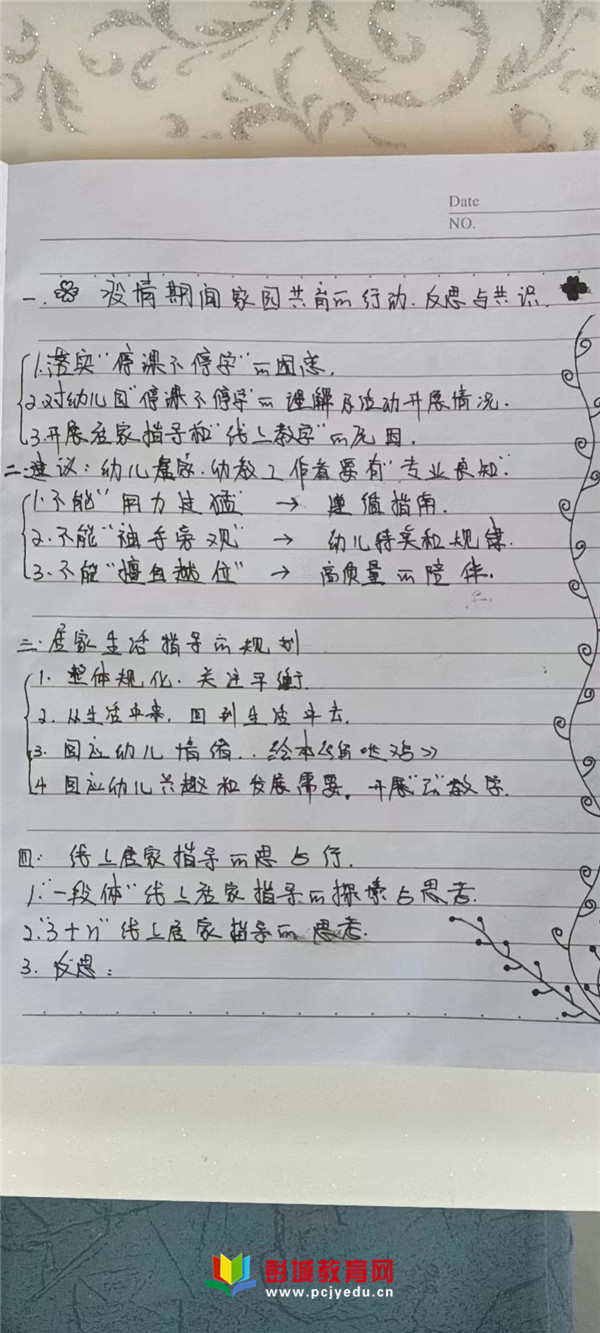 Date
NO.
一. 疫情期间家园共育的行动.反思与共识.
1.落实"停课不停学"的困惑.
2.对幼儿园"停课不停学"的理解及活动开展情况.
3.开展居家指导和"线上教学"的原因.
二.建议:幼儿居家.幼教工作者要有"专业良知".
1.不能"用力过猛" → 遵循指南.
2.不能"袖手旁观" → 幼儿特点和规律.
3.不能"擅自越位" → 高质量的陪伴.
三.居家生活指导的规划
1. 整体规化.关注平衡.
2.从生活中来,回到生活中去.
3. 回应幼儿情绪..绘本
4 回应幼儿兴趣和发展需要.开展"云"教学.
四: 线上居家指导的思与行.
1."一段体"线上居家指导的探索与思考.
2."3+n"线上居家指导的思考.
3. 反思:
彭城教育网
www.pcjyedu.cn